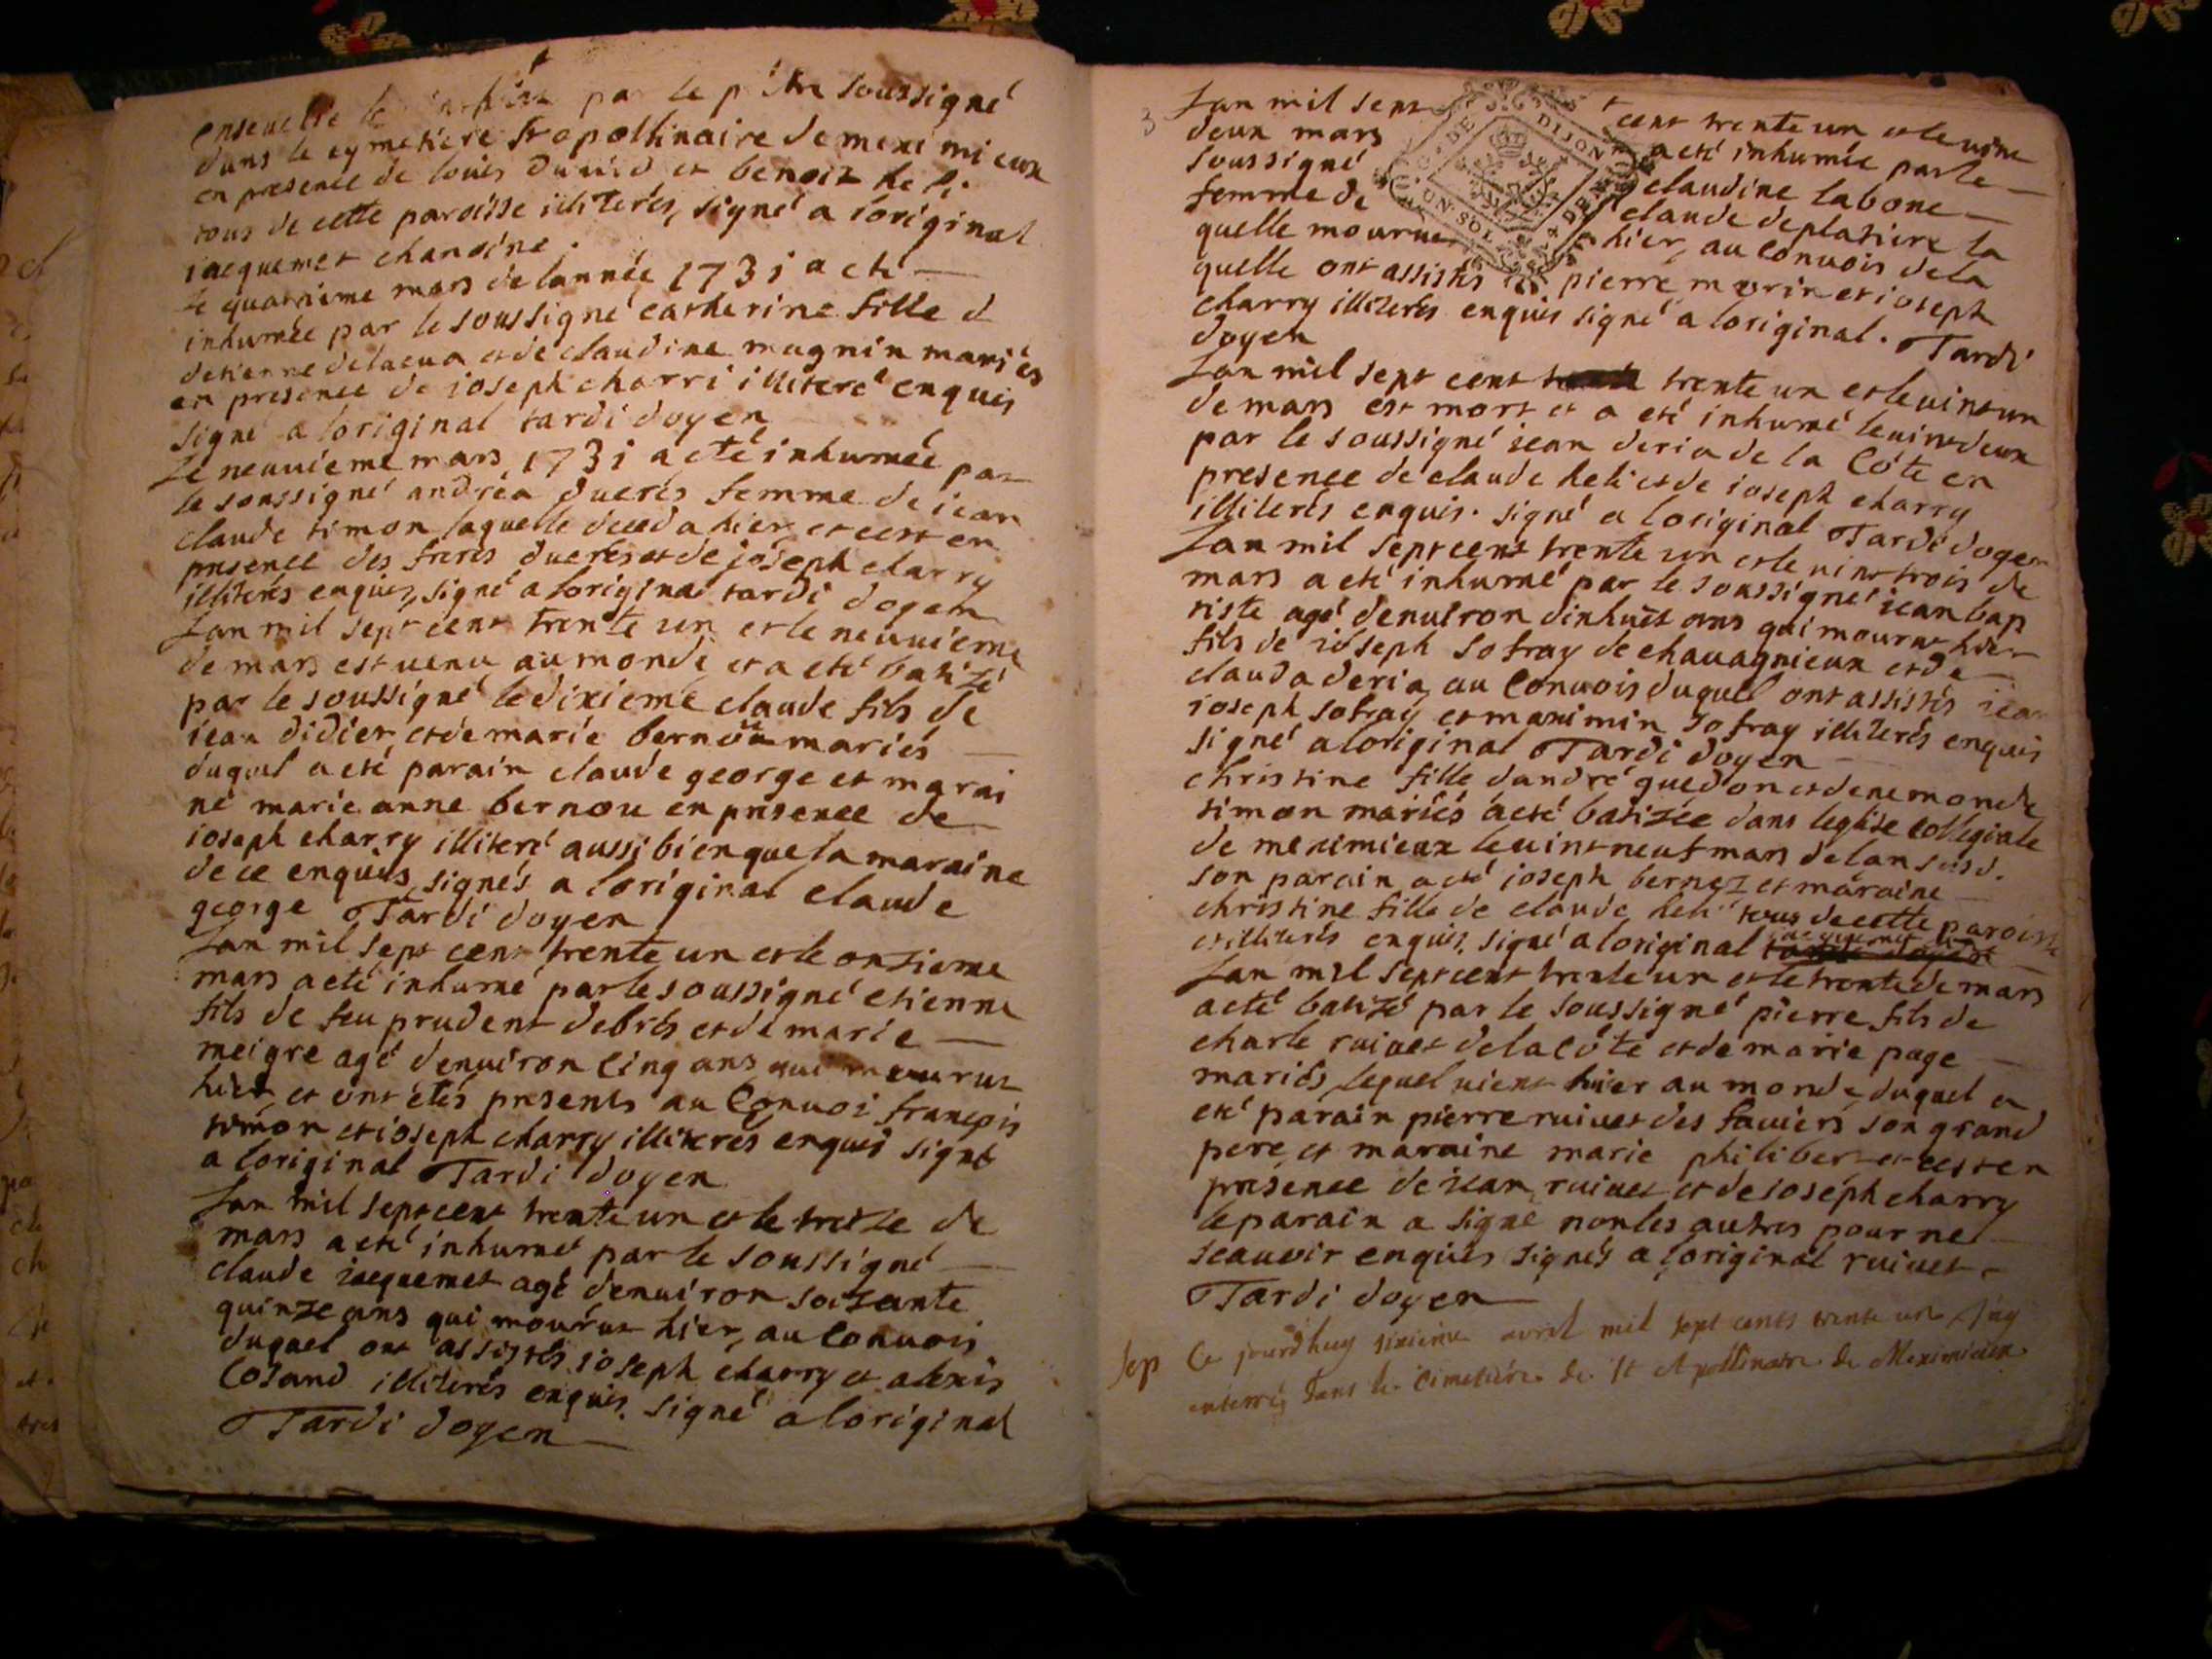 ensevelie le par le prêtre soussigné
dans le cymetiere St apollinaire de meximieux
en presence de louis david et benoit heli
tous de cette paroisse illiterés, signé a loriginal
iacquemet chanoine.
Le quatrieme mars de lannée 1731 a eté
inhumée par le soussigné catherine fille d
detienne delacua et de claudine magnin mariés
en presence de ioseph charri illiteré enquis
signé a loriginal tardi doyen
Le neuvieme mars 1731 a eté inhumée par
le soussigné andréa duerés femme de iean
claude timon laquelle deceda hier et cest en
presence des freres duerés et de joseph charry
illiterés enquis, signé a loriginal tardi doyen
Lan mil sept cent trente un et le neuvieme
de mars est venu au monde et a eté batizé
par le soussigné le dixieme claude fils de
iean didier et de marie bernou mariés
duquel a eté parain claude george et marai
ne marie anne bernou en presence de
ioseph charry illiteré aussi bien que la maraine
de ce enquis, signés a loriginal claude
george Tardi doyen
Lan mil sept cent trente un et le onzieme
mars a eté inhumé par le soussigné etienne
fils de feu prudent debrés et de marie
meigre agé denviron cinq ans qui mourut
hier et ont étés presents au convoi francois
timon et ioseph charry illiterés enquis signé
a loriginal Tardi doyen
Lan mil sept cent trente un et le treize de
mars a eté inhumé par le soussigné
claude iacquemet agé denviron soizante
quinze ans qui mourut hier, au convois
duquel ont assistés ioseph charry et alexis
cosand illiterés enquis. signé a loriginal
Tardi doyen
3 Lan mil sept cent trente un et le vint
deux mars a eté inhumée par le
soussigné claudine labone
femme de claude deplatiere la
quelle mourut hier, au convois de la
quelle ont assistés pierre morin et ioseph
charry illiterés enquis signé a loriginal. Tardi
doyen
G. DE DIJON
UN SOL 4 DEN
Lan mil sept cent trente un et le vint un
de mars est mort et a eté inhumé le vint deux
par le soussigné iean deria de la côte en
presence de claude heli et de ioseph charry
illiterés enquis. signé a loriginal Tardi doyen
Lan mil sept cent trente un et le vint trois de
mars a eté inhumé par le soussigné iean bap
tiste agé denviron dixhuit ans qui mourut hier
fils de ioseph sofray de chavagnieux et de
clauda deria, au convois duquel ont assistés iean
ioseph sofray et maximin sofray illiterés enquis
signé a loriginal Tardi doyen
christine fille dandré guedon et denemonde
timon mariés a eté batizée dans leglise collegiale
de meximieux le vint neuf mars de lan susd.
son parain a eté ioseph bernez et maraine
christine fille de claude heli tous de cette paroisse
et illiterés enquis, signé a loriginal iacquemet
Lan mil sept cent trente un et le trente de mars
a eté batizé par le soussigné pierre fils de
charle ruivet de la côte et de marie page
mariés, lequel vient hier au monde, duquel a
eté parain pierre ruivet des faviers son grand
pere et maraine marie philibert et cest en
presence de iean ruivet et de ioseph charry
le parain a signé non les autres pour ne
scauoir enquis signés a loriginal ruivet
Tardi doyen
Sep Ce jourd'huy sixieme avril mil sept cents trente un
enterré dans le Cimetiére de St Apollinaire de Meximieux